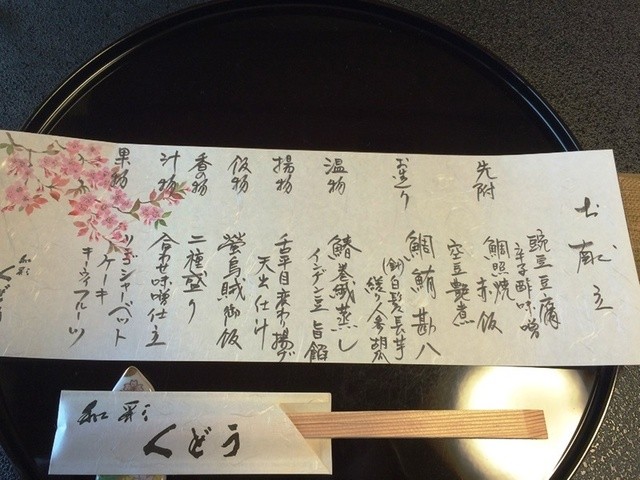 お献立
先附
豌豆豆腐
辛子酢味噌
鯛照焼 赤飯
空豆艶煮
お造り
鯛 鮪 勘八
(剣)白髪長芋
温物
鰆巻繊蒸し
インゲン豆 旨餡
揚物
舌平目変わり揚げ
天出仕汁
飯物
螢烏賊御飯
香の物
二種盛り
汁物
合わせ味噌仕立
果物
シャーベット
ケーキ
キーウィフルーツ
和彩
くどう
和彩
くどう